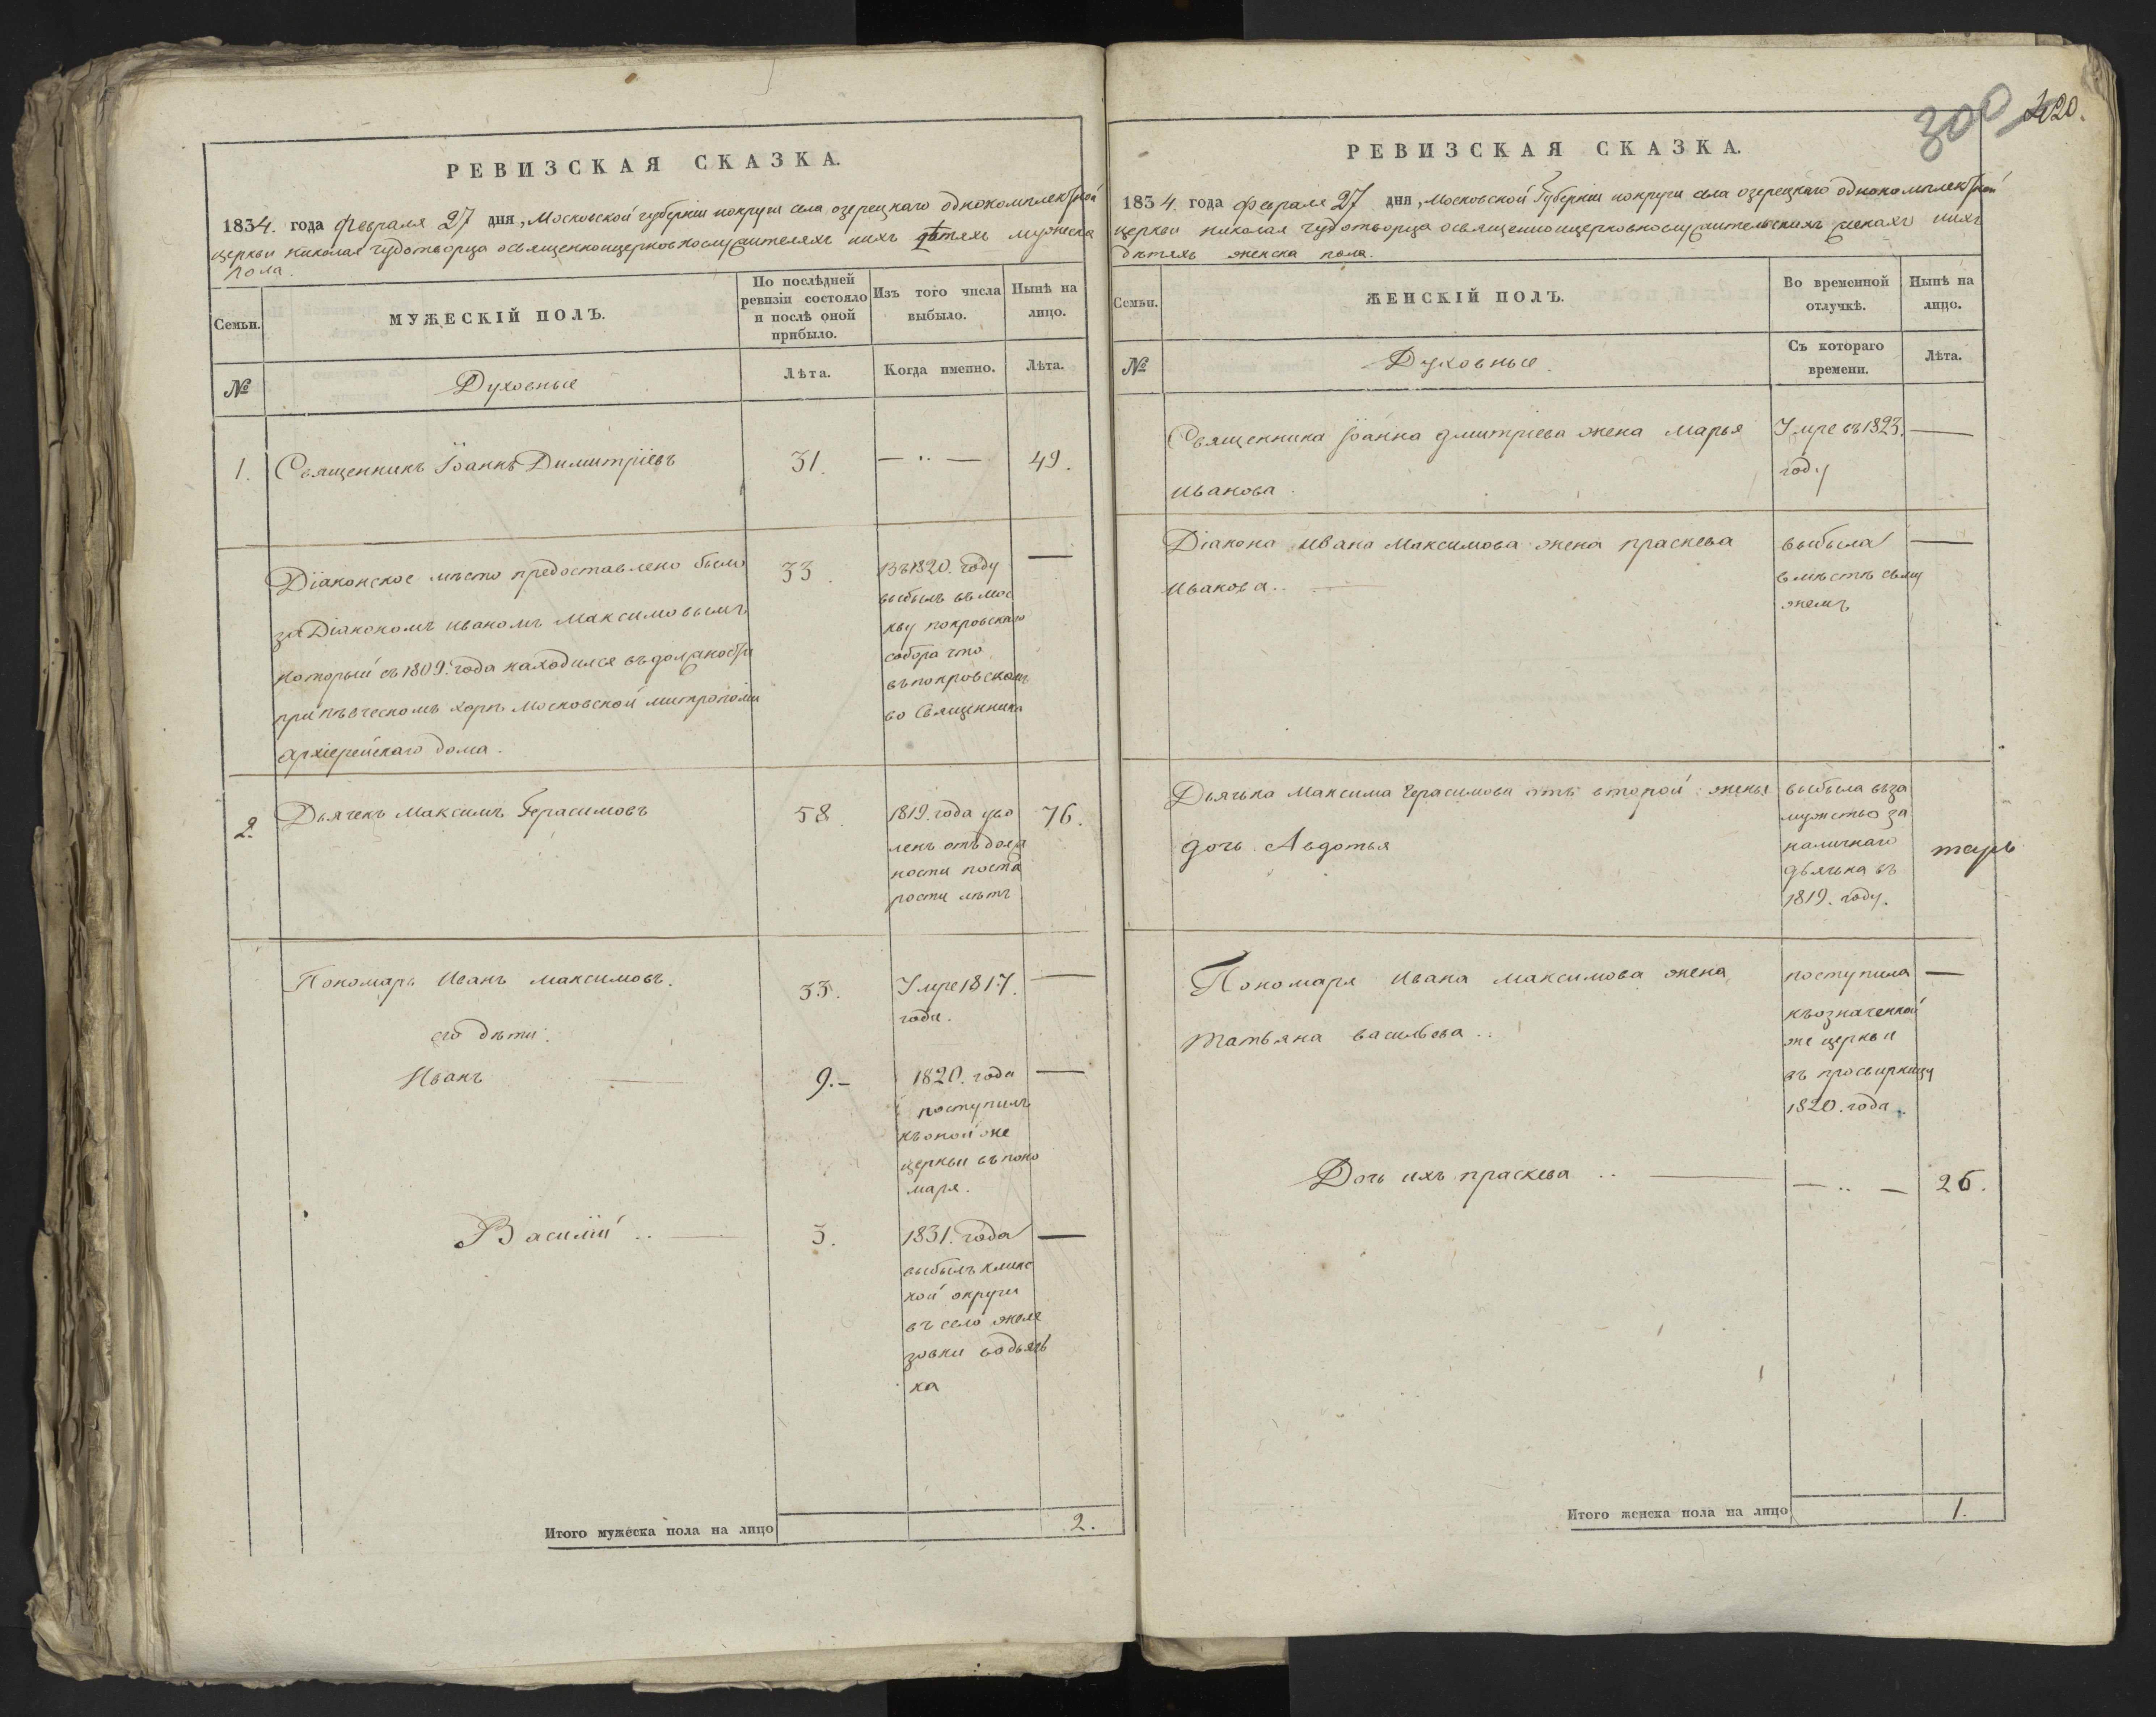 РЕВИЗСКАЯ СКАЗКА.
1834. года Февраля 27 дня, Московской губерніи иокруги села озерецкаго однокомплектной
церкви николая чудотворца освященноицерковнослужителяхъ иихъ дѣтяхъ мужеска
пола.
Семьи.
МУЖЕСКІЙ ПОЛЪ.
По послѣдней
ревизіи состояло
и послѣ оной
прибыло.
Изъ того числа
выбыло.
Нынѣ на
лицо.
№
Духовные
Лѣта.
Когда именно.
Лѣта.
1. Священникъ Іоаннъ Димитріевъ 31. — .. — 49.
Діаконское мѣсто предоставлено было 33. —
за Діакономъ иваномъ Максимовымъ
который съ 1809. года находился въ должности
при пѣвческомъ хорѣ Московской митрополіи
архіерейскаго дома.
Въ 1820. году
выбылъ въ мос
кву покровскаго
собора что
въ покровском
во Священника
2. Дьячекъ Максимъ Герасимовъ 58. 76.
1819. года уво
ленъ отъ долж
ности поста
рости лѣтъ
Пономарь Иванъ максимовъ. 33. Умре 1817. —
года.
его дѣти:
Иванъ — 9. — 1820. года —
поступилъ
къ оной же
церкви въ поно
маря.
Василій .. — 3. 1831. года —
выбылъ клинс
кой округи
въ село желе
зовки во дьяч
ка
Итого мужеска пола на лицо 2.
300 420.
РЕВИЗСКАЯ СКАЗКА.
1834. года Февраля 27 дня, Московской Губерніи иокруги села озерецкаго однокомплектной
церкви николая чудотворца освященноицерковнослужительскихъ женахъ иихъ
дѣтяхъ женска пола.
Семьи.
ЖЕНСКІЙ ПОЛЪ.
Во временной
отлучкѣ.
Нынѣ на
лицо.
№
Духовные.
Съ котораго
времени.
Лѣта.
Священника Іоанна дмитріева жена марья Умре въ 1823. —
Иванова. году
Діакона ивана Максимова жена праскева выбыла —
Иванова .. — вмѣстѣ съ му
жемъ
Дьячька Максима Герасимова отъ второй жены
дочь Авдотья
выбыла въ за
мужство за
наличнаго
дьячька въ
1819. году.
Пономаря Ивана максимова жена поступила —
Татьяна васильева ..
къ означенной
же церкви
въ просвирницу
1820. года.
Дочь ихъ праскева .. — — .. — 26.
Итого женска пола на лицо 1.